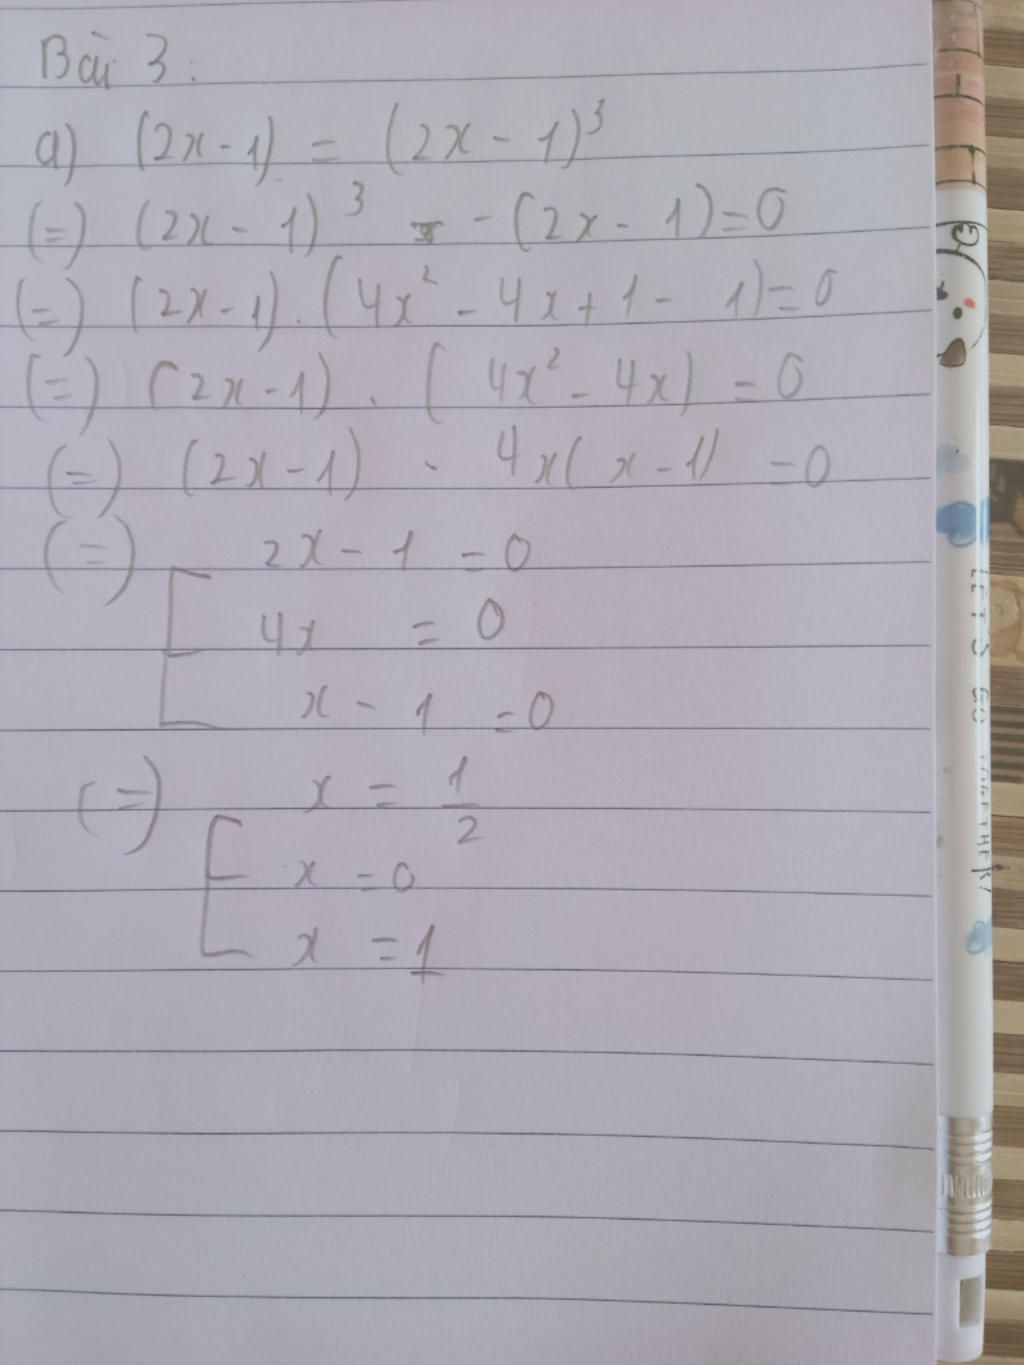 Bài 3:
a) (2x - 1) = (2x - 1)³
(=) (2x - 1)³ - (2x - 1) = 0
(=) (2x - 1) . (4x² - 4x + 1 - 1) = 0
(=) (2x - 1) . (4x² - 4x) = 0
(=) (2x - 1) . 4x(x - 1) = 0
(=) [ 2x - 1 = 0
4x = 0
x - 1 = 0
(=) [ x = 1/2
x = 0
x = 1
LET'S GO TOGETHER!